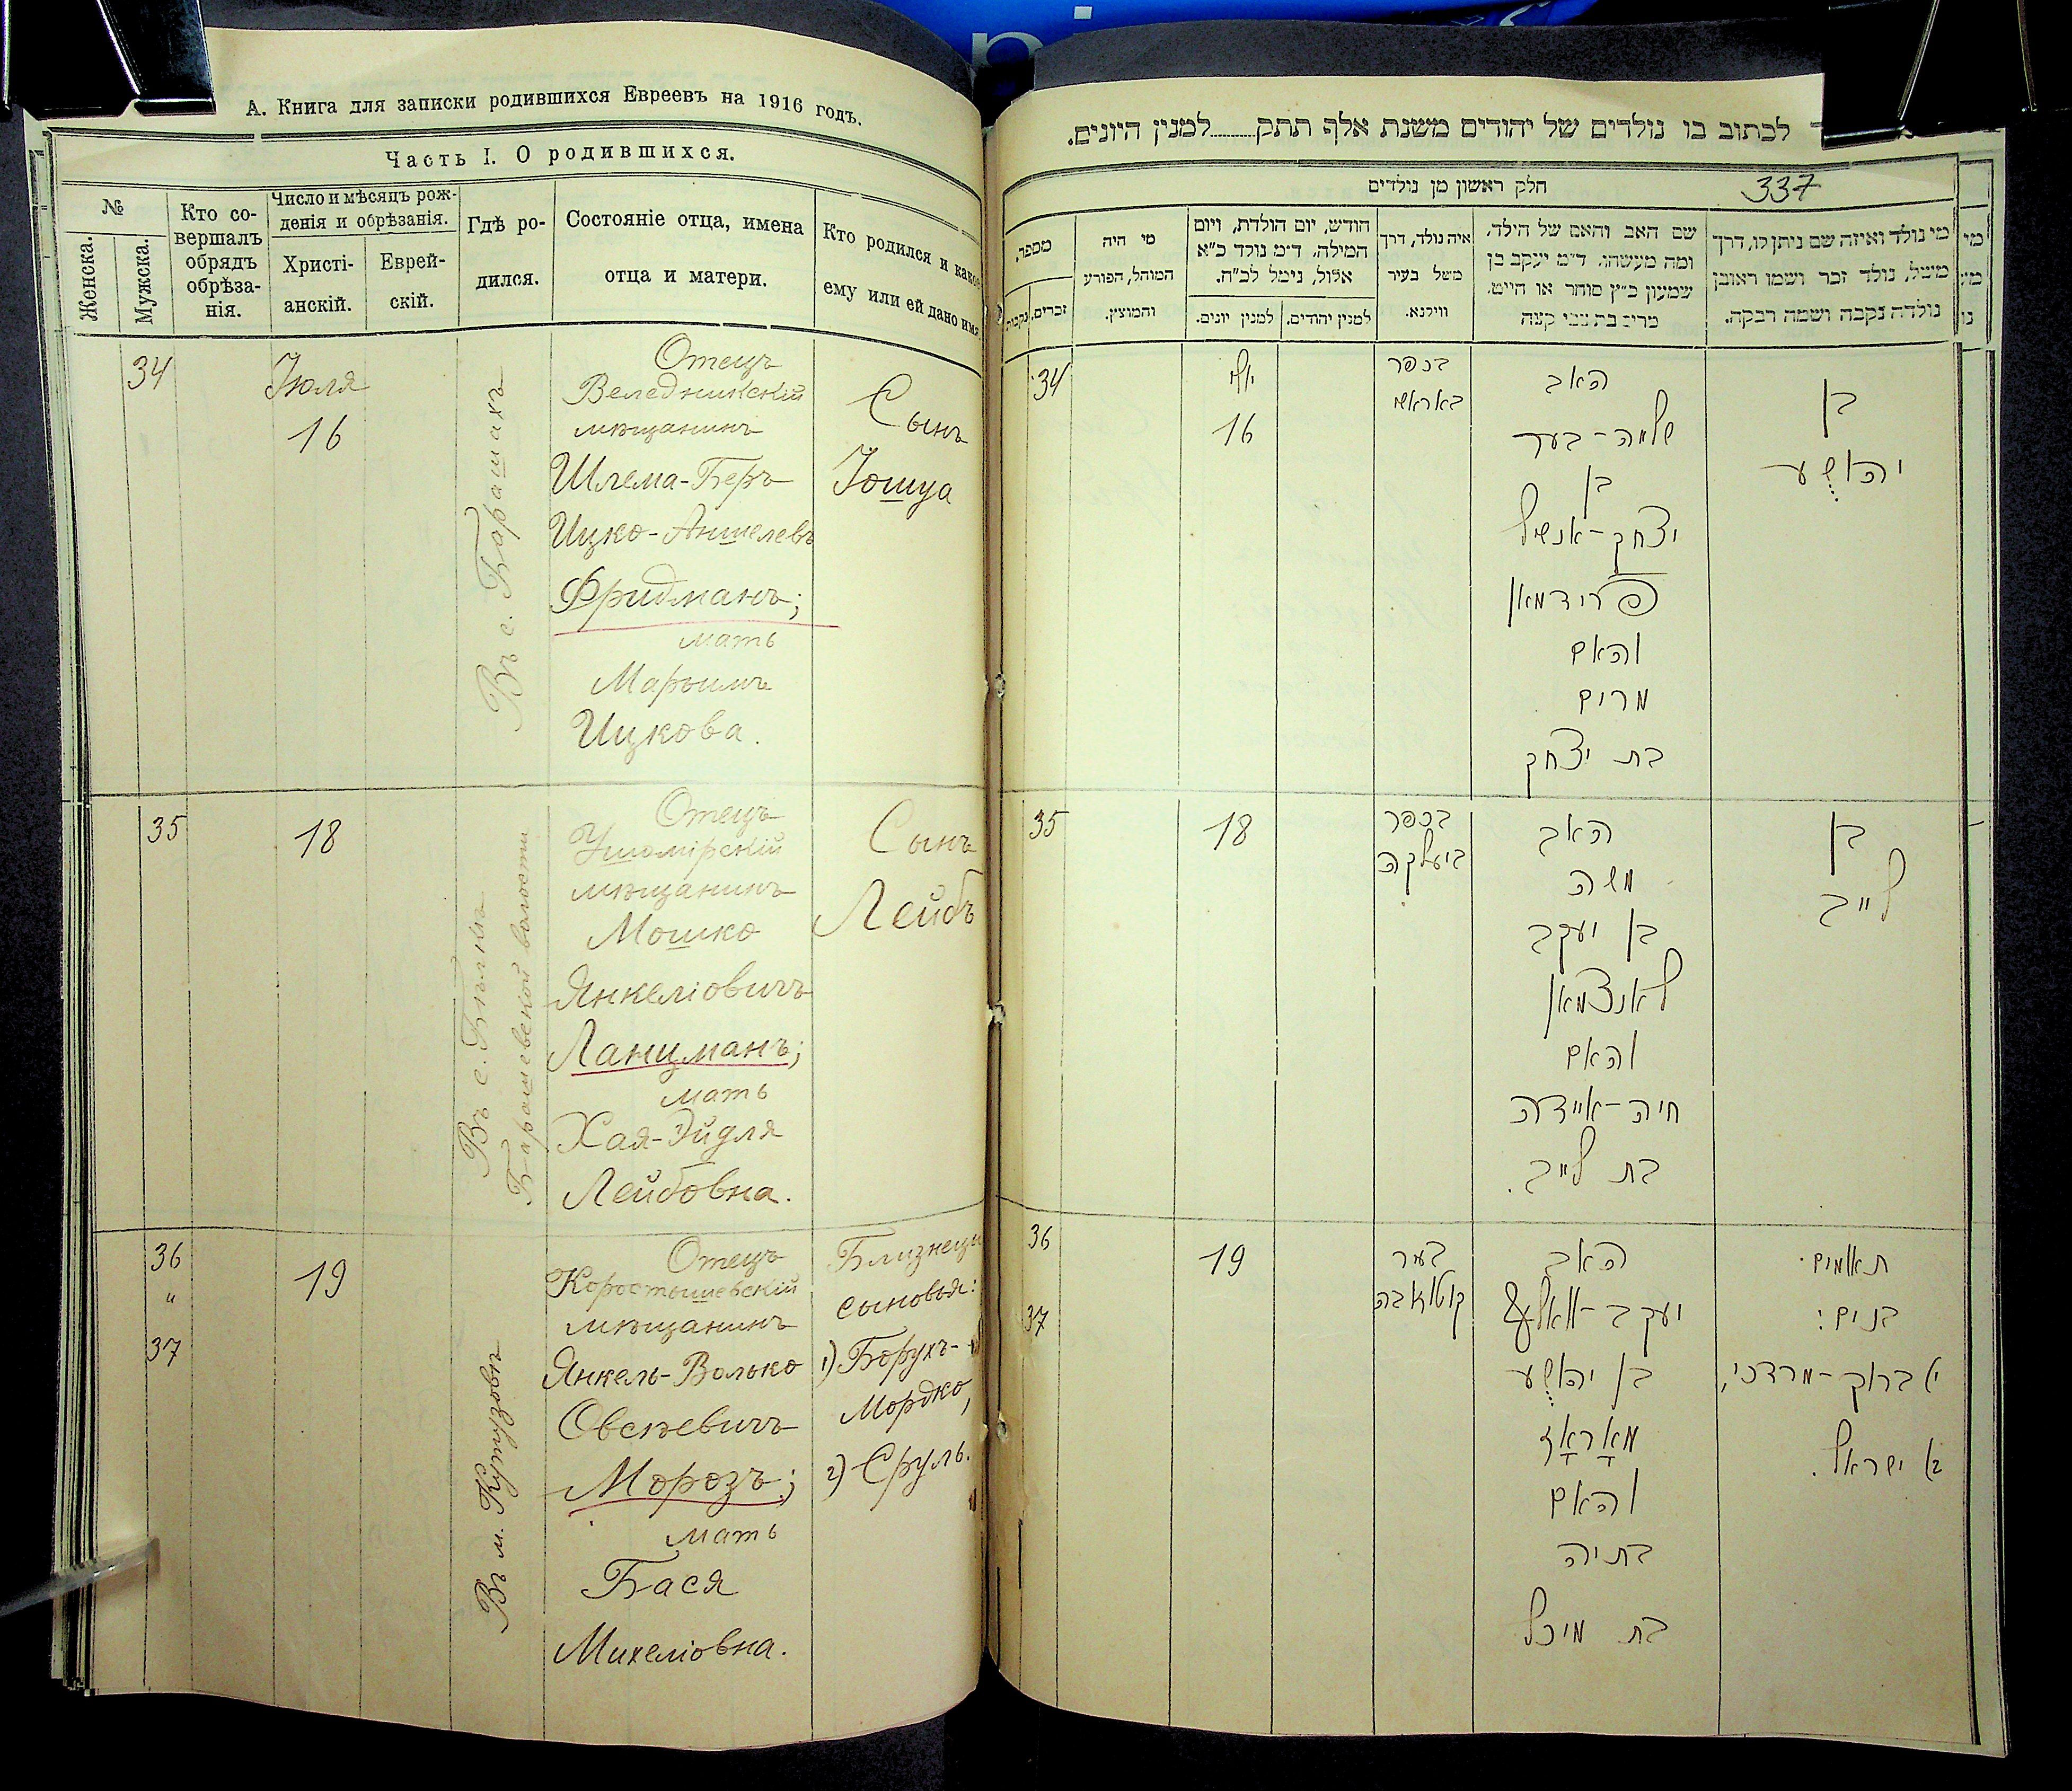 А. Книга для записки родившихся Евреевъ на 1916 годъ.
Часть I. О родившихся.
№
Женска.
Мужска.
Кто со-
вершалъ
обрядъ
обрѣза-
нія.
Число и мѣсяцъ рож-
денія и обрѣзанія.
Христі-
анскій.
Еврей-
скій.
Гдѣ ро-
дился.
Состояніе отца, имена
отца и матери.
Кто родился и какое
ему или ей дано имя
34
Июля
16
Въ с. Барашахъ
Отецъ
Веледникскій
мѣщанинъ
Шлема-Беръ
Ицко-Аншелевъ
Фридманъ;
мать
Марьимъ
Ицкова.
Сынъ
Iошуа
35
18
Въ с. Бѣлкѣ
Барашевской волости
Отецъ
Ушомірскій
мѣщанинъ
Мошко
Янкеліовичъ
Ланцманъ;
мать
Хая-Эйдля
Лейбовна.
Сынъ
Лейбъ
36
"
37
19
Въ м. Кутузовѣ
Отецъ
Коростышевскій
мѣщанинъ
Янкель-Волько
Овсѣевичъ
Морозъ;
мать
Бася
Михеліовна.
Близнецы
сыновья:
1) Борухъ-
Мордко,
2) Сруль.
לכתוב בו נולדים של יהודים משנת אלף תתק......למנין היונים.
337
חלק ראשון מן נולדים
מספר.
זכרים.
נקבות
מי היה
המוהל, הפורע
והמוצץ.
חודש, יום הולדת, ויום
המילה. ד״מ נולד כ״א
אלול, נימל לכ״ח.
למנין יונים.
למנין יהודים.
איה נולד, דרך
משל בעיר
ווילנא.
שם האב והאם של הילד,
ומה מעשהו. ד״מ יעקב בן
שמעון כ״ץ סוחר או חייט.
מי נולד ואיזה שם ניתן לו, דרך
משל, נולד זכר ושמו ראובן
נולדה נקבה ושמה רבקה.
34
יולי
16
בכפר
באראשי
האב
שלמה-בער
בן
יצחק-אנשיל
פרידמאן
והאם
מרים
בת יצחק
בן
יהושע
35
18
בכפר
ביעלקה
האב
משה
בן יעקב
לאנצמאן
והאם
חיה-איידלה
בת לייב.
בן
לייב
36
37
19
בעיר
קוטוזאבה
האב
יעקב-וואלף
בן יהושע
מאראז
והאם
בתיה
בת מיכל
תאומים.
בנים:
א) ברוך-מרדכי,
ב) ישראל.